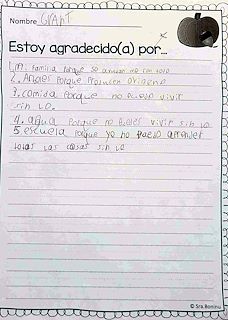 Nombre GRANT
Estoy agradecido(a) por...
1. mi familia porque so ayudan me con todo
2. Arboles porque producen oxigeno
3. comida porque no puedo vivir
sin Lo.
4. agua porque no puedes vivir sin Lo
5. escuela porque yo no puedo aprender
todas las cosas sin Lo
© Sra. Bominu